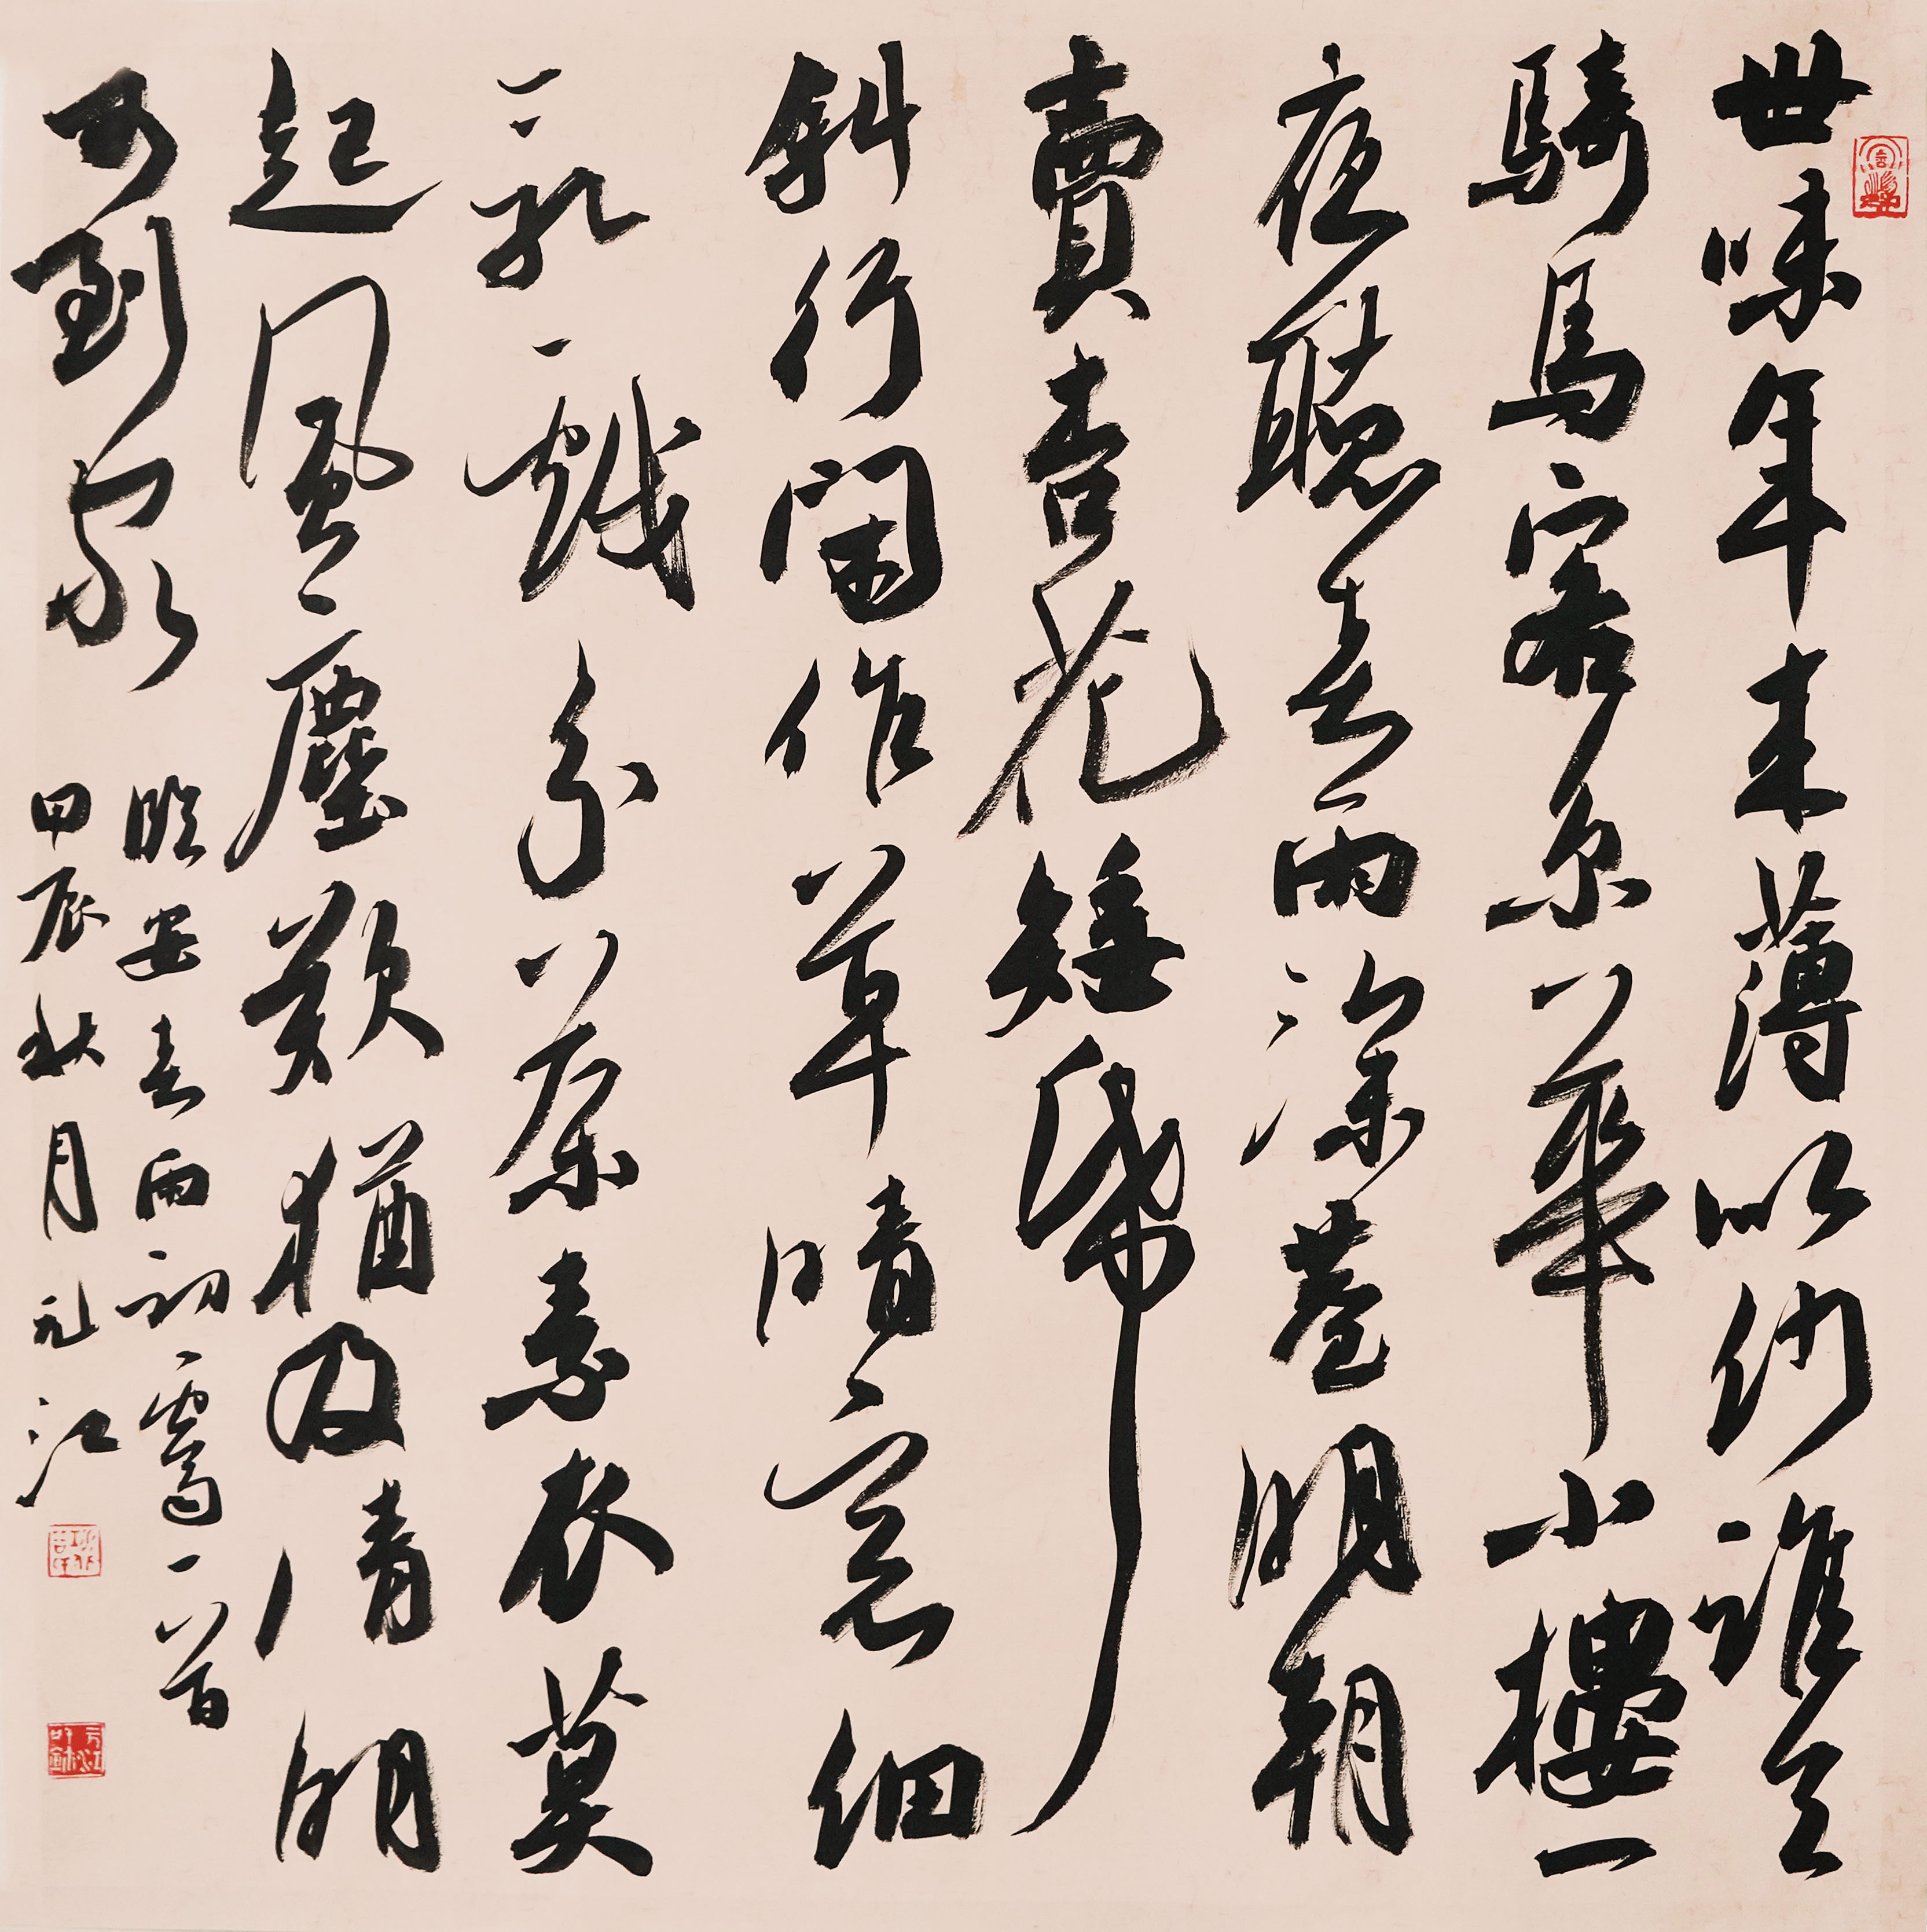 世味年来薄似紗誰令
騎馬客京華小樓一
夜聽春雨深巷明朝
賣杏花矮帋
斜行閑作草晴窓細
乳戲分茶素衣莫
起風塵歎猶及清明
可到家
臨安春雨初霽一首
甲辰秋月元江